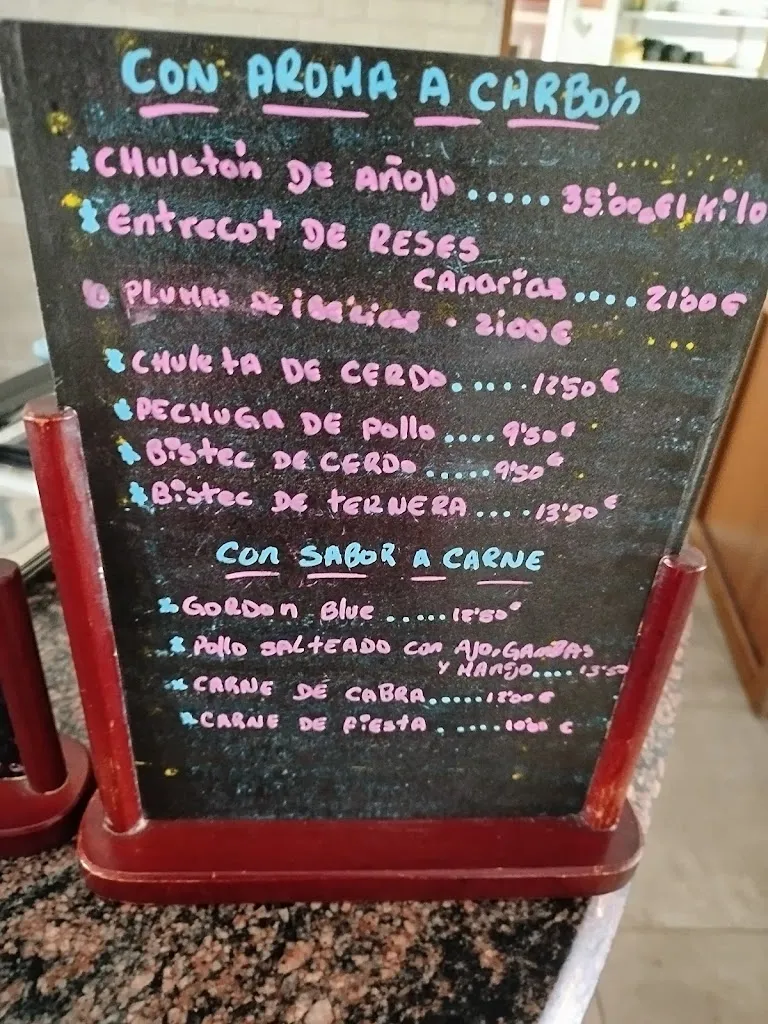 CON AROMA A CARBÓN
CHULETÓN DE AÑOJO ..... 35'00 € El Kilo
ENTRECOT DE RESES
CANARIAS .... 21'00 €
PLUMAS DE IBÉRICAS . 21'00 €
CHULETA DE CERDO ..... 12'50 €
PECHUGA DE POLLO .... 9'50 €
BISTEC DE CERDO ..... 9'50 €
BISTEC DE TERNERA .... 13'50 €
CON SABOR A CARNE
GORDON BLUE .....
POLLO SALTEADO CON AJO, GAMBAS
Y MANGO .... 13'50
CARNE DE CABRA .....
CARNE DE FIESTA .